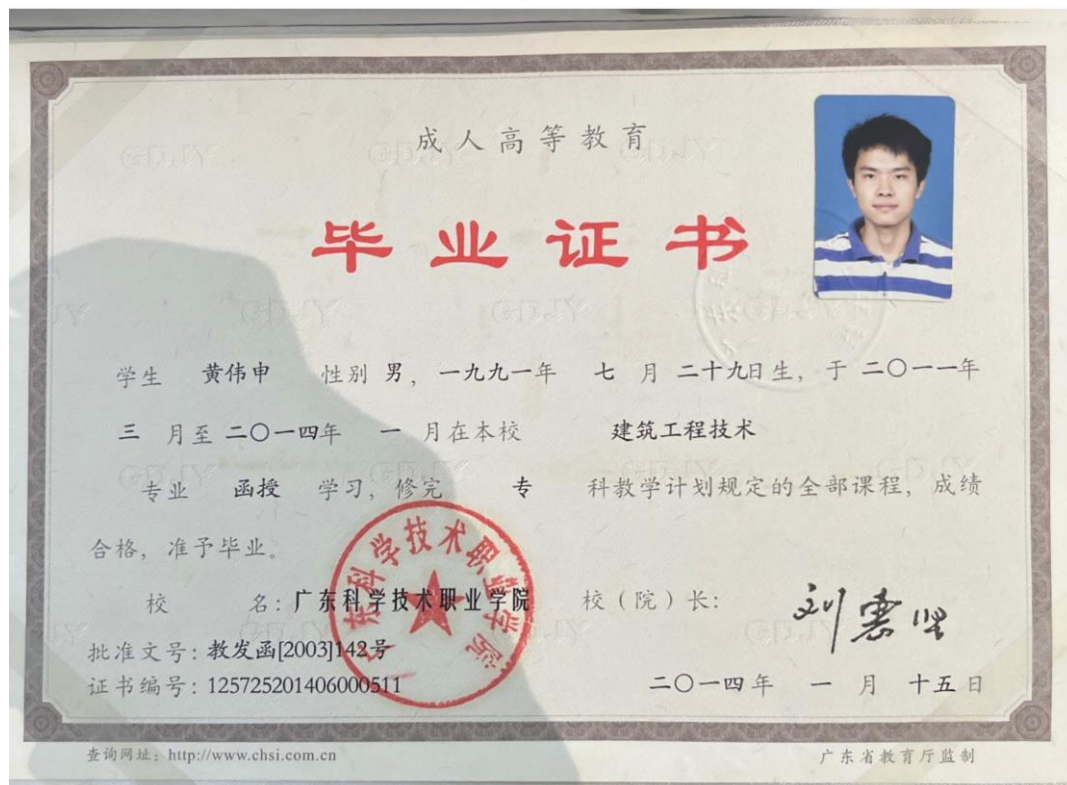 成人高等教育
毕业证书
学生 黄伟申 性别 男，一九九一年 七 月 二十九日生，于 二〇一一年
三 月至 二〇一四年 一 月在本校 建筑工程技术
专业 函授 学习，修完 专 科教学计划规定的全部课程，成绩
合格，准予毕业。
校 名：广东科学技术职业学院 校（院）长：刘惠坚
批准文号：教发函[2003]142号
证书编号：125725201406000511 二〇一四年 一 月 十五日
广东科学技术职业学院
查询网址：http://www.chsi.com.cn 广东省教育厅监制